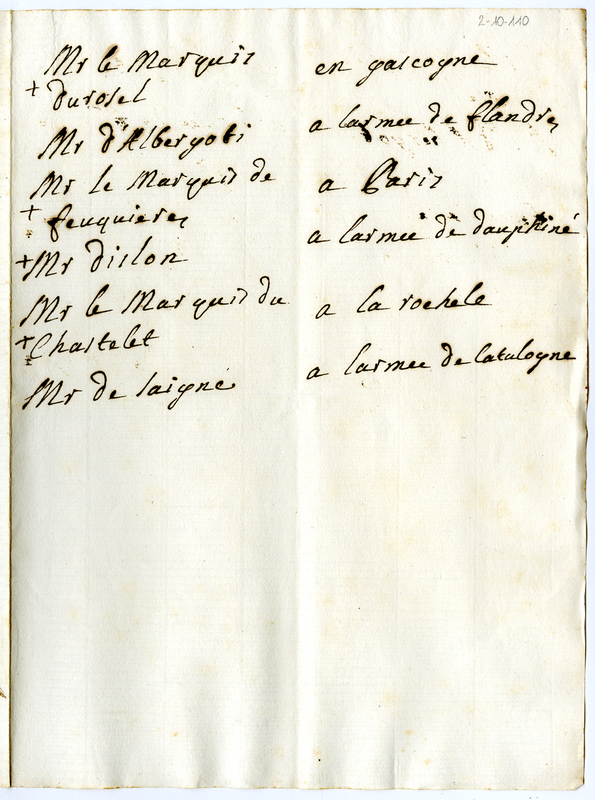 2-10-110
Mr le Marquis en gascogne
+ durosel
Mr d'Albergoti a larmee de flandres
Mr le Marquis de a Paris
+ feuquieres
+ Mr dislon a larmee de dauphiné
Mr le Marquis du a la rochele
+ Chastelet
Mr de laigné a larmee de Catalogne